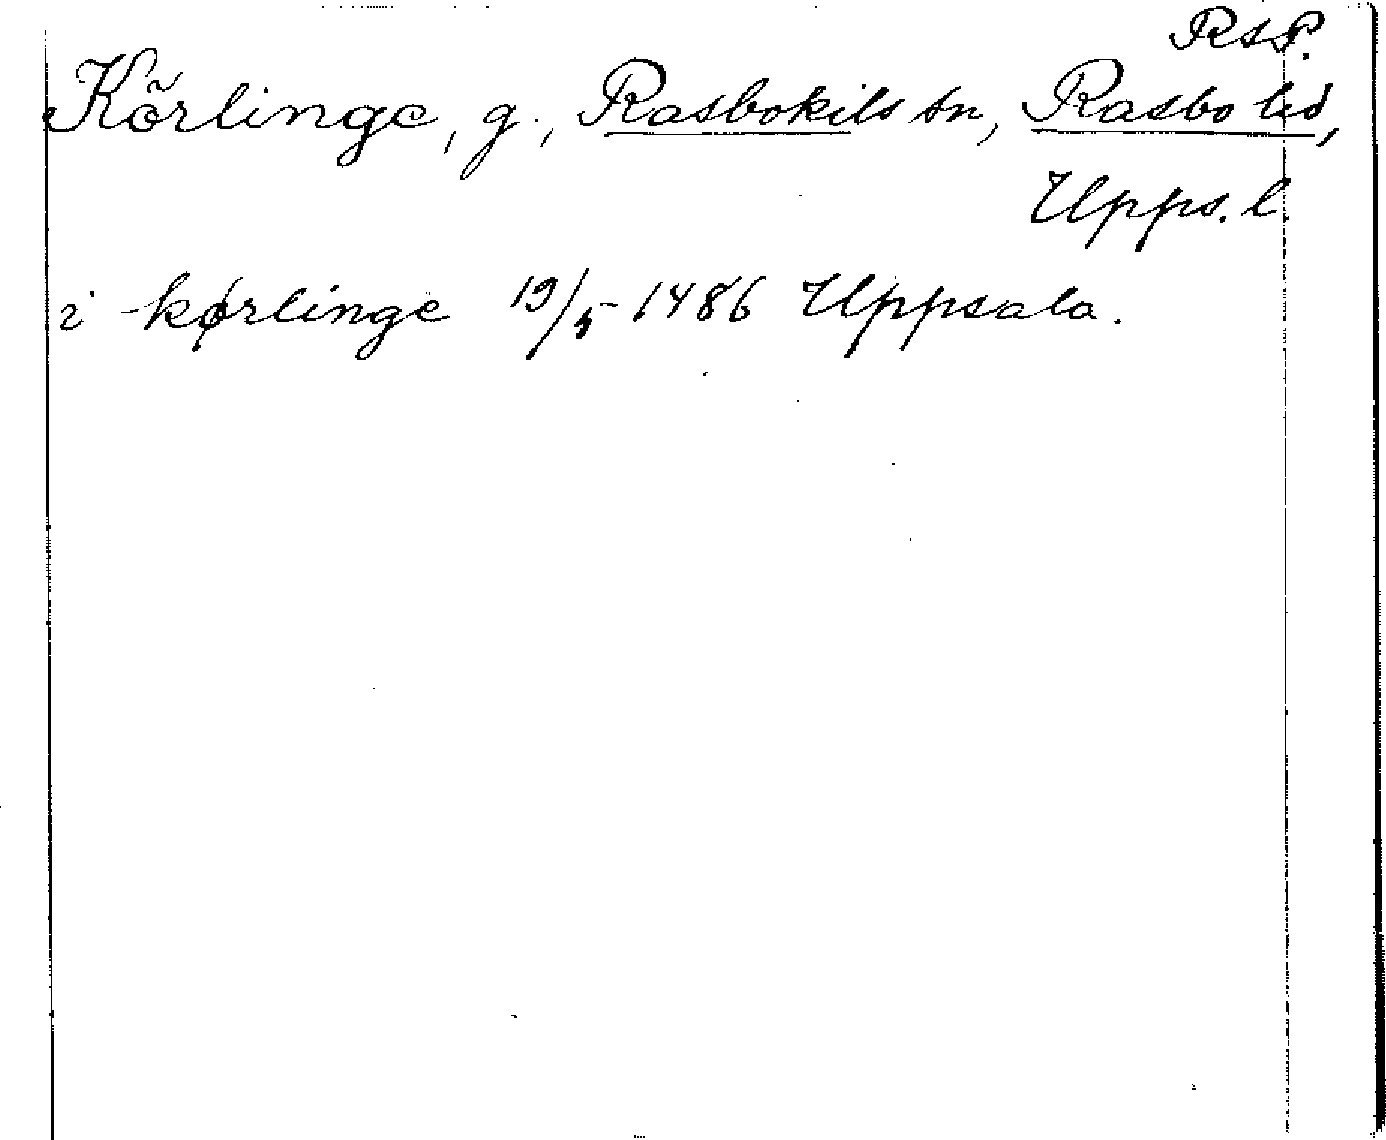 RAP.
Körlinge, g., Rasbokils sn, Rasbo hd,
Upps. l.
i kørlinge 19/5 1486 Uppsala.